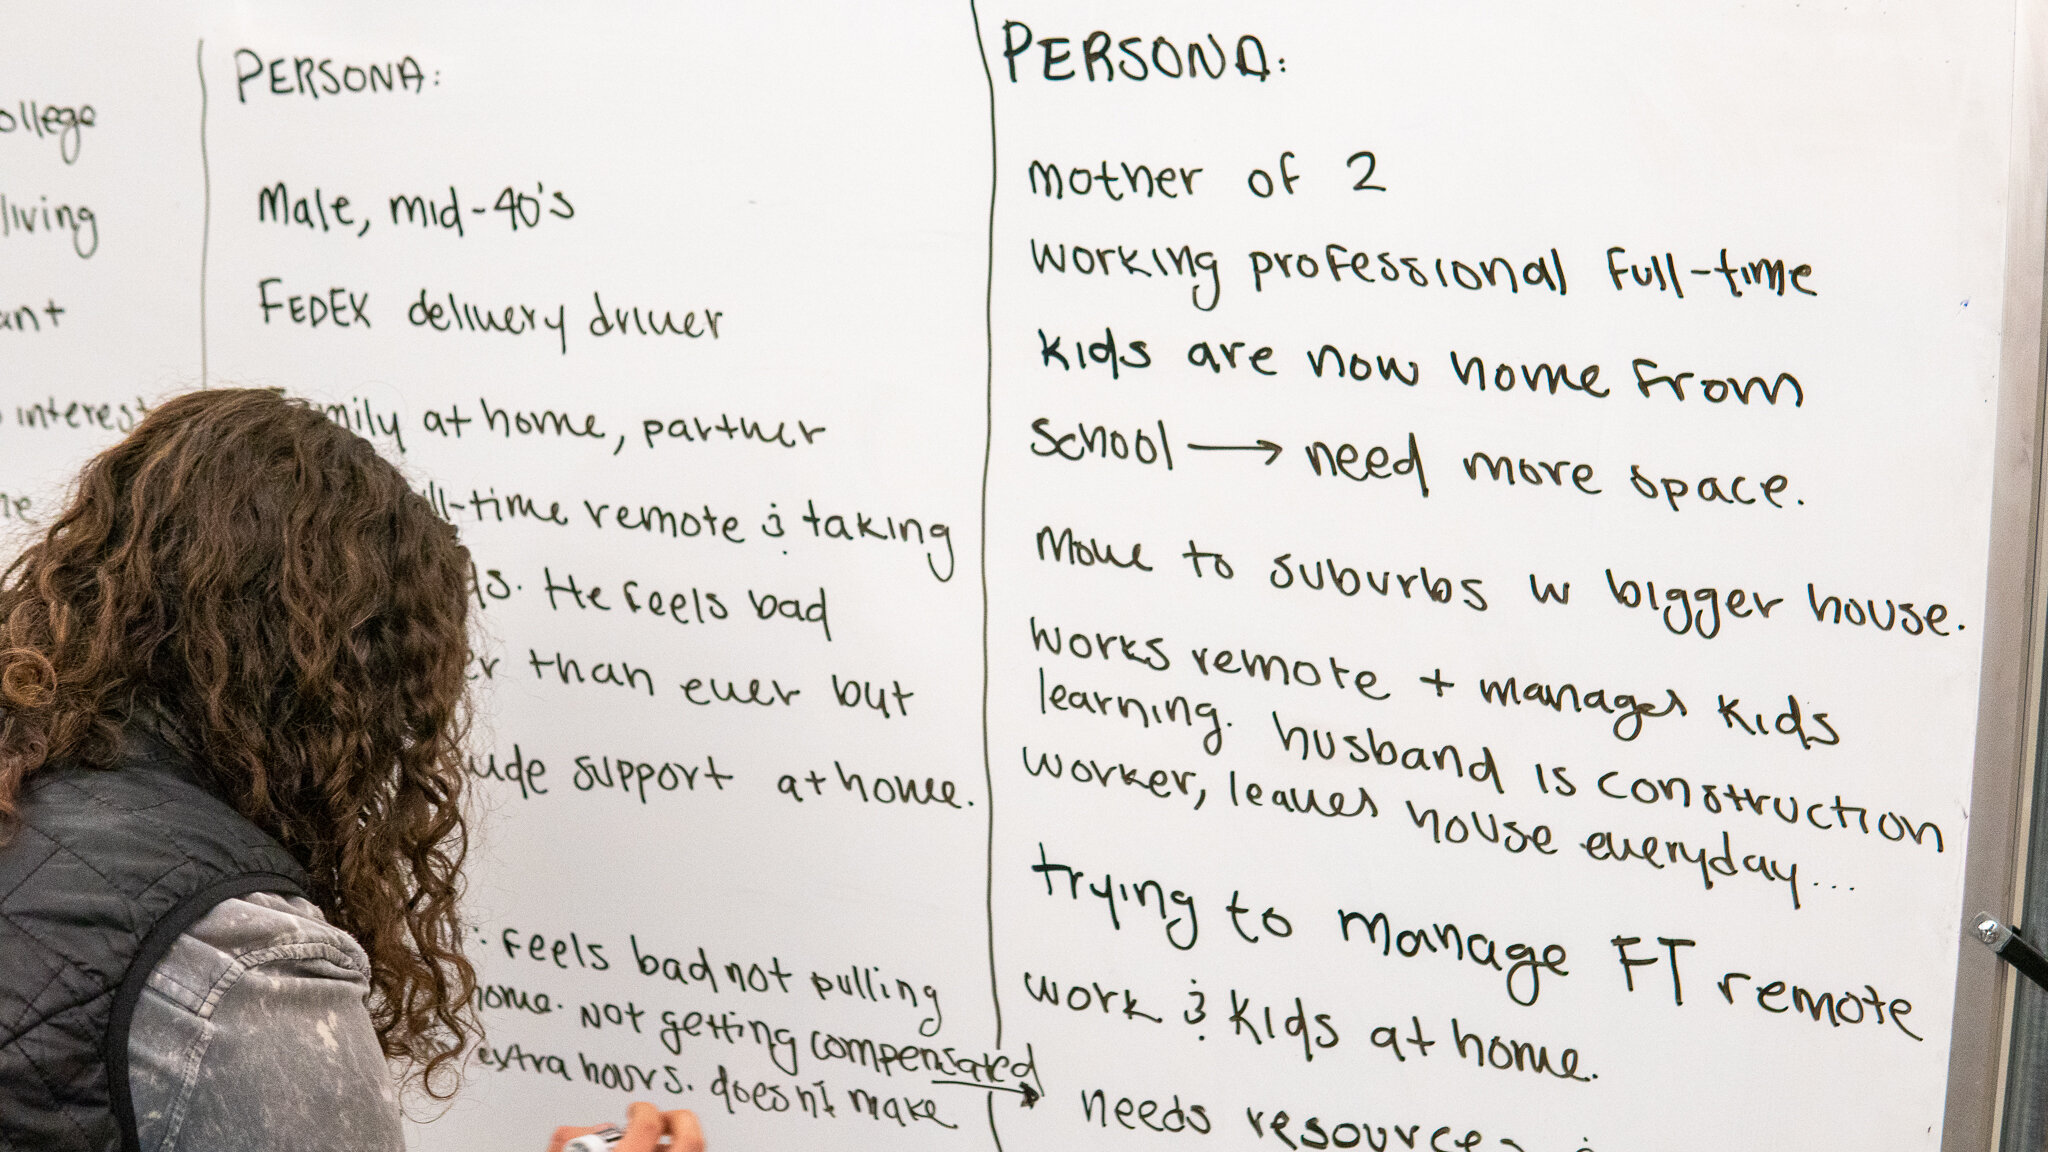 college
living
interest
PERSONA:
Male, mid-40's
FEDEX delivery driver
family at home, partner
full-time remote & taking
He feels bad
than ever but
support at home.
feels bad not pulling
home. Not getting compensated
extra hours. doesn't make
PERSONA:
mother of 2
working professional full-time
kids are now home from
school → need more space.
Move to suburbs w bigger house.
works remote + manages kids
learning. husband is construction
worker, leaves house everyday...
trying to manage FT remote
work & kids at home.
needs resources